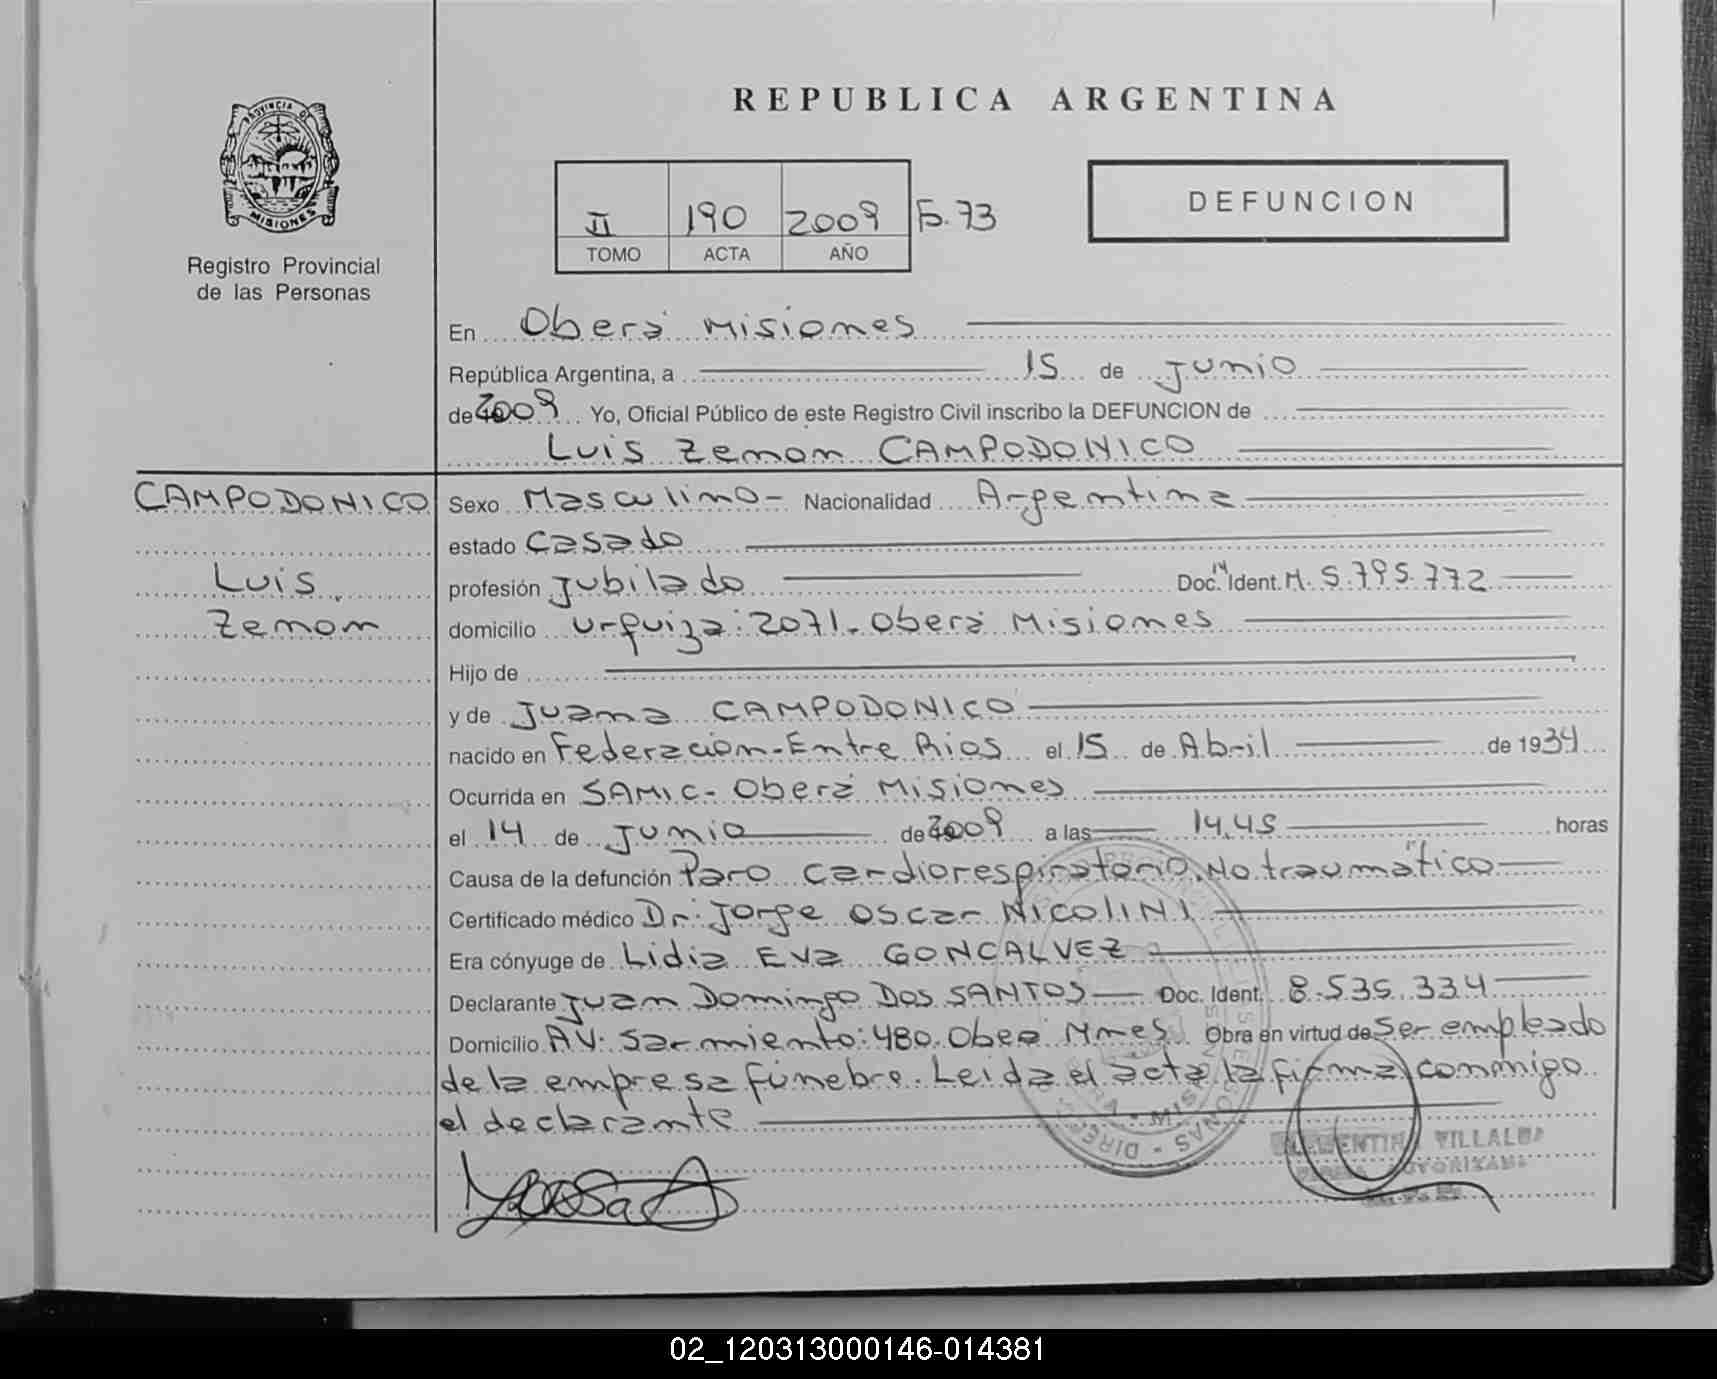 REPUBLICA ARGENTINA
PROVINCIA DE
MISIONES
Registro Provincial
de las Personas
II 190 2009 F. 73
TOMO ACTA AÑO
DEFUNCION
En Oberá Misiones
República Argentina, a 15 de Junio
de 2009 Yo, Oficial Público de este Registro Civil inscribo la DEFUNCION de
Luis Zenon CAMPODONICO
CAMPODONICO
Luis
Zenon
Sexo Masculino- Nacionalidad Argentina
estado Casado
profesión Jubilado Doc. Ident. M. 5.795.772
domicilio Urquiza: 2071. Oberá Misiones
Hijo de
y de Juana CAMPODONICO
nacido en Federación-Entre Rios el 15 de Abril de 1934
Ocurrida en SAMIC- Oberá Misiones
el 14 de Junio de 2009 a las 14,45 horas
Causa de la defunción Paro Cardiorespiratorio. No traumático
Certificado médico Dr: Jorge Oscar NICOLINI
Era cónyuge de Lidia Eva GONCALVEZ
Declarante Juan Domingo DOS SANTOS Doc. Ident. 8.535.334
Domicilio AV: Sarmiento: 480. Obea Mnes Obra en virtud de Ser empleado
de la empresa fúnebre. Leida el acta la firma conmigo
el declarante
VILLALBA
02_120313000146-014381